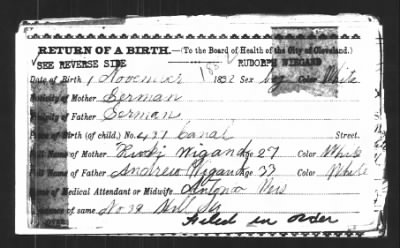 RETURN OF A BIRTH.—(To the Board of Health of the City of Cleveland.)
SEE REVERSE SIDE 1882 RUDOLPH WIEGAND
Date of Birth, 1 November 1882 Sex boy Color White
Nativity of Mother German
Nativity of Father German
Place of Birth (of child.) No. 431 Canal Street.
Full Name of Mother Wigand Age 27 Color White
Full Name of Father Andrew Wigand Age 33 Color White
Name of Medical Attendant or Midwife,
of same No 39 Hill St
Filed in order